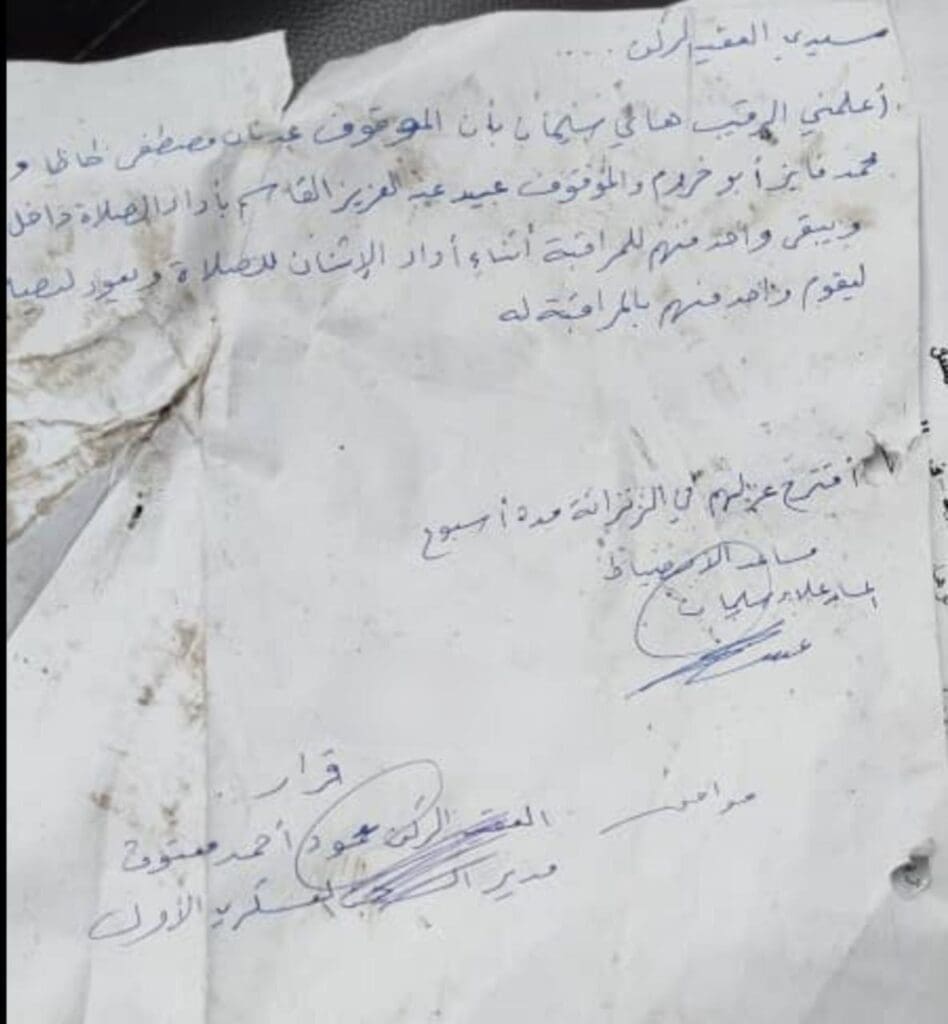 سيدي العقيد الركن .....
أعلمني الرقيب هاني سليمان بأن الموقوف عدنان مصطفى و
محمد فايز أبو خروم والموقوف عبيد عبد العزيز القاسم بأداء الصلاة داخل
ويبقى واحد منهم للمراقبة أثناء أداء الإثنان للصلاة ويعود
ليقوم واحد منهم بالمراقبة له
أقترح عزلهم في الزنزانة مدة أسبوع
مساعد الانضباط
علاء سليمان
قرار
موافق
العقيد الركن محمود أحمد معتوق
مدير العسكري الأول